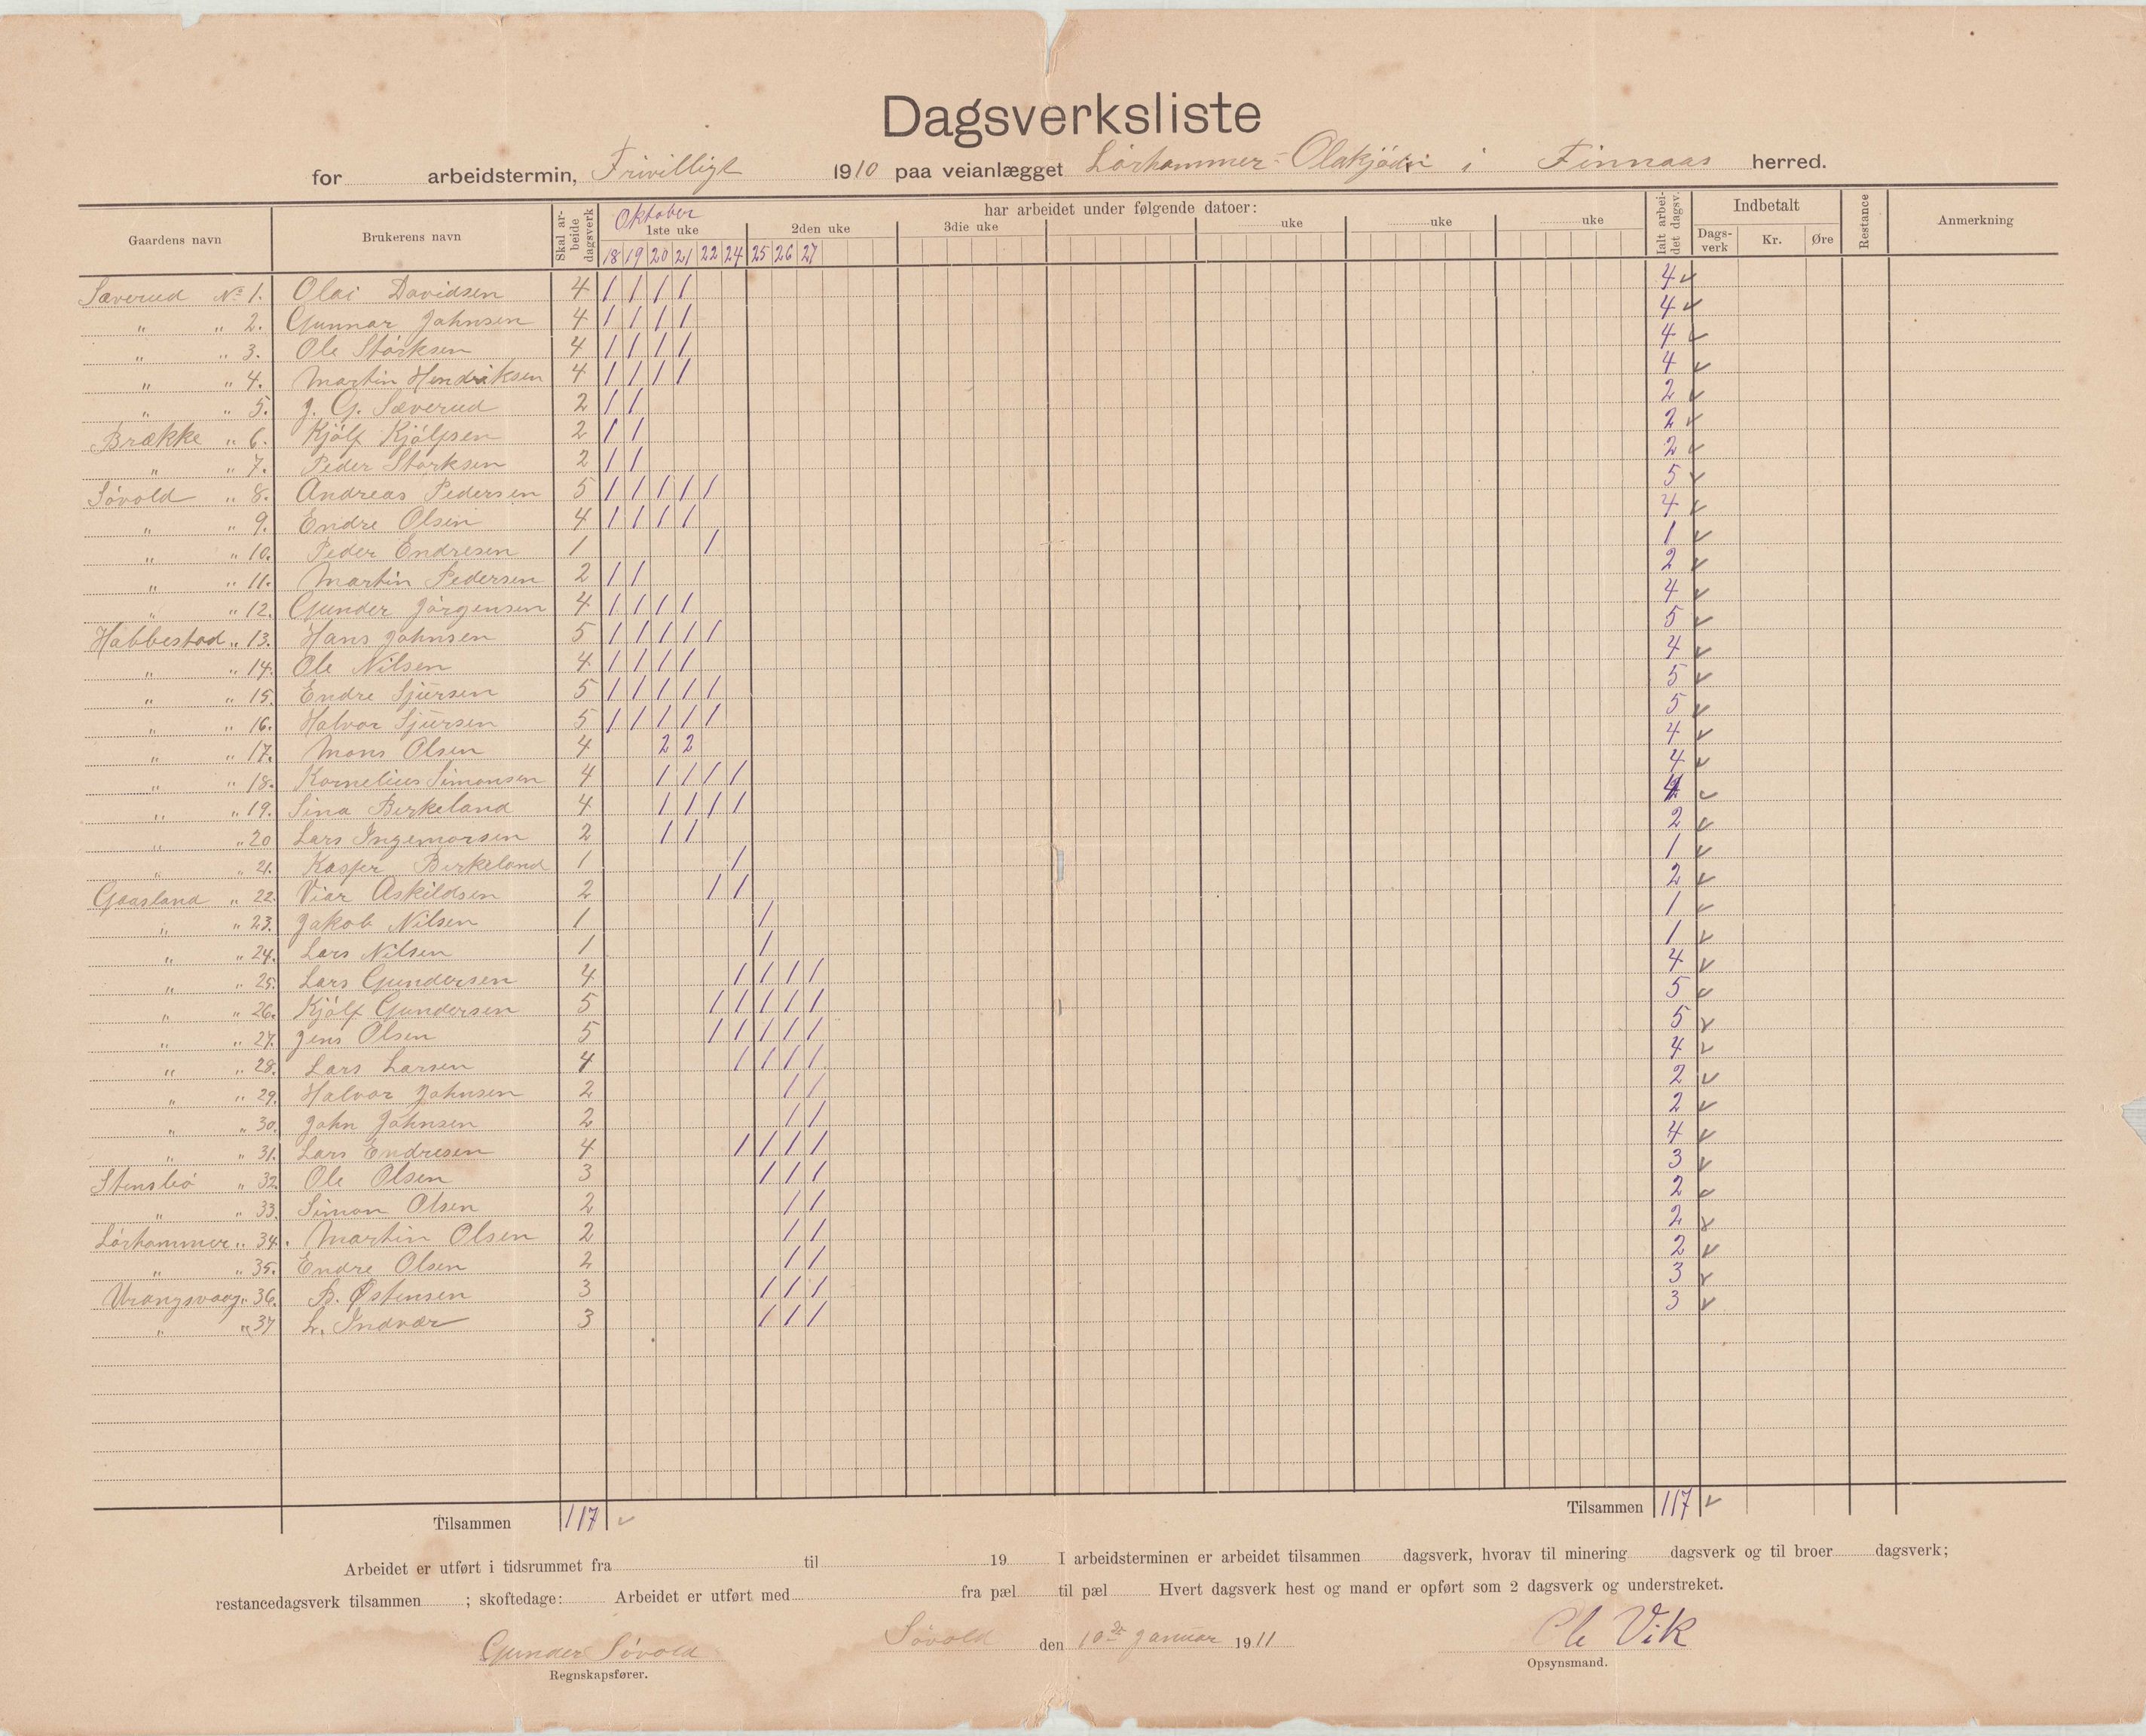 Dagsverksliste
for arbeidstermin, Frivilligt 1910 paa veianlægget Lórhammer - Olakjódn i Finnaas herred.
Gaardens navn Brukerens navn Skal arbeide dagsverk har arbeidet under følgende datoer: Ialt arbeidet dagsv. Indbetalt Restance Anmerkning
Oktober
1ste uke 2den uke 3die uke uke uke uke Dagsverk Kr. Øre
18 19 20 21 22 24 25 26 27
Sæverud No 1. Olai Davidsen 4 / / / / 4 ✓
" " 2. Gunnar Johnsen 4 / / / / 4 ✓
" " 3. Ole Størksen 4 / / / / 4 ✓
" " 4. Martin Hendriksen 4 / / / / 4 ✓
" " 5. J. G. Sæverud 2 / / 2 ✓
Brække " 6. Kjólf Kjólfsen 2 / / 2 ✓
" " 7. Peder Størksen 2 / / 2 ✓
Sóvold " 8. Andreas Pedersen 5 / / / / / 5 ✓
" " 9. Endre Olsen 4 / / / / 4 ✓
" " 10. Peder Endresen 1 / 1 ✓
" " 11. Martin Pedersen 2 / / 2 ✓
" " 12. Gunder Jórgensen 4 / / / / 4 ✓
Habbestad " 13. Hans Johnsen 5 / / / / / 5 ✓
" " 14. Ole Nilsen 4 / / / / 4 ✓
" " 15. Endre Sjursen 5 / / / / / 5 ✓
" " 16. Halvor Sjursen 5 / / / / / 5 ✓
" " 17. Mons Olsen 4 2 2 4 ✓
" " 18. Kornelius Simonsen 4 / / / / 4 ✓
" " 19. Sina Birkeland 4 / / / / 4 ✓
" " 20 Lars Ingemorsen 2 / / 2 ✓
" " 21. Kasper Birkeland 1 / 1 ✓
Gaasland " 22. Viar Askildsen 2 / / 2 ✓
" " 23. Jakob Nilsen 1 / 1 ✓
" " 24. Lars Nilsen 1 / 1 ✓
" " 25. Lars Gundersen 4 / / / / 4 ✓
" " 26. Kjólf Gundersen 5 / / / / / 5 ✓
" " 27. Jens Olsen 5 / / / / / 5 ✓
" " 28. Lars Larsen 4 / / / / 4 ✓
" " 29. Halvor Johnsen 2 / / 2 ✓
" " 30. John Johnsen 2 / / 2 ✓
" " 31. Lars Endresen 4 / / / / 4 ✓
Stensbó " 32. Ole Olsen 3 / / / 3 ✓
" " 33. Simon Olsen 2 / / 2 ✓
Lórhammer " 34. Martin Olsen 2 / / 2 ✓
" " 35. Endre Olsen 2 / / 2 ✓
Vrangsvaag " 36. B. Østensen 3 / / / 3 ✓
" " 37 L. Indvær 3 / / / 3 ✓
Tilsammen 117 ✓ Tilsammen 117 ✓
Arbeidet er utført i tidsrummet fra til 19 I arbeidsterminen er arbeidet tilsammen dagsverk, hvorav til minering dagsverk og til broer dagsverk;
restancedagsverk tilsammen ; skoftedage: Arbeidet er utført med fra pæl til pæl Hvert dagsverk hest og mand er opført som 2 dagsverk og understreket.
Gunder Sóvold Sóvold den 10de Januar 1911 Ole Vik
Regnskapsfører. Opsynsmand.